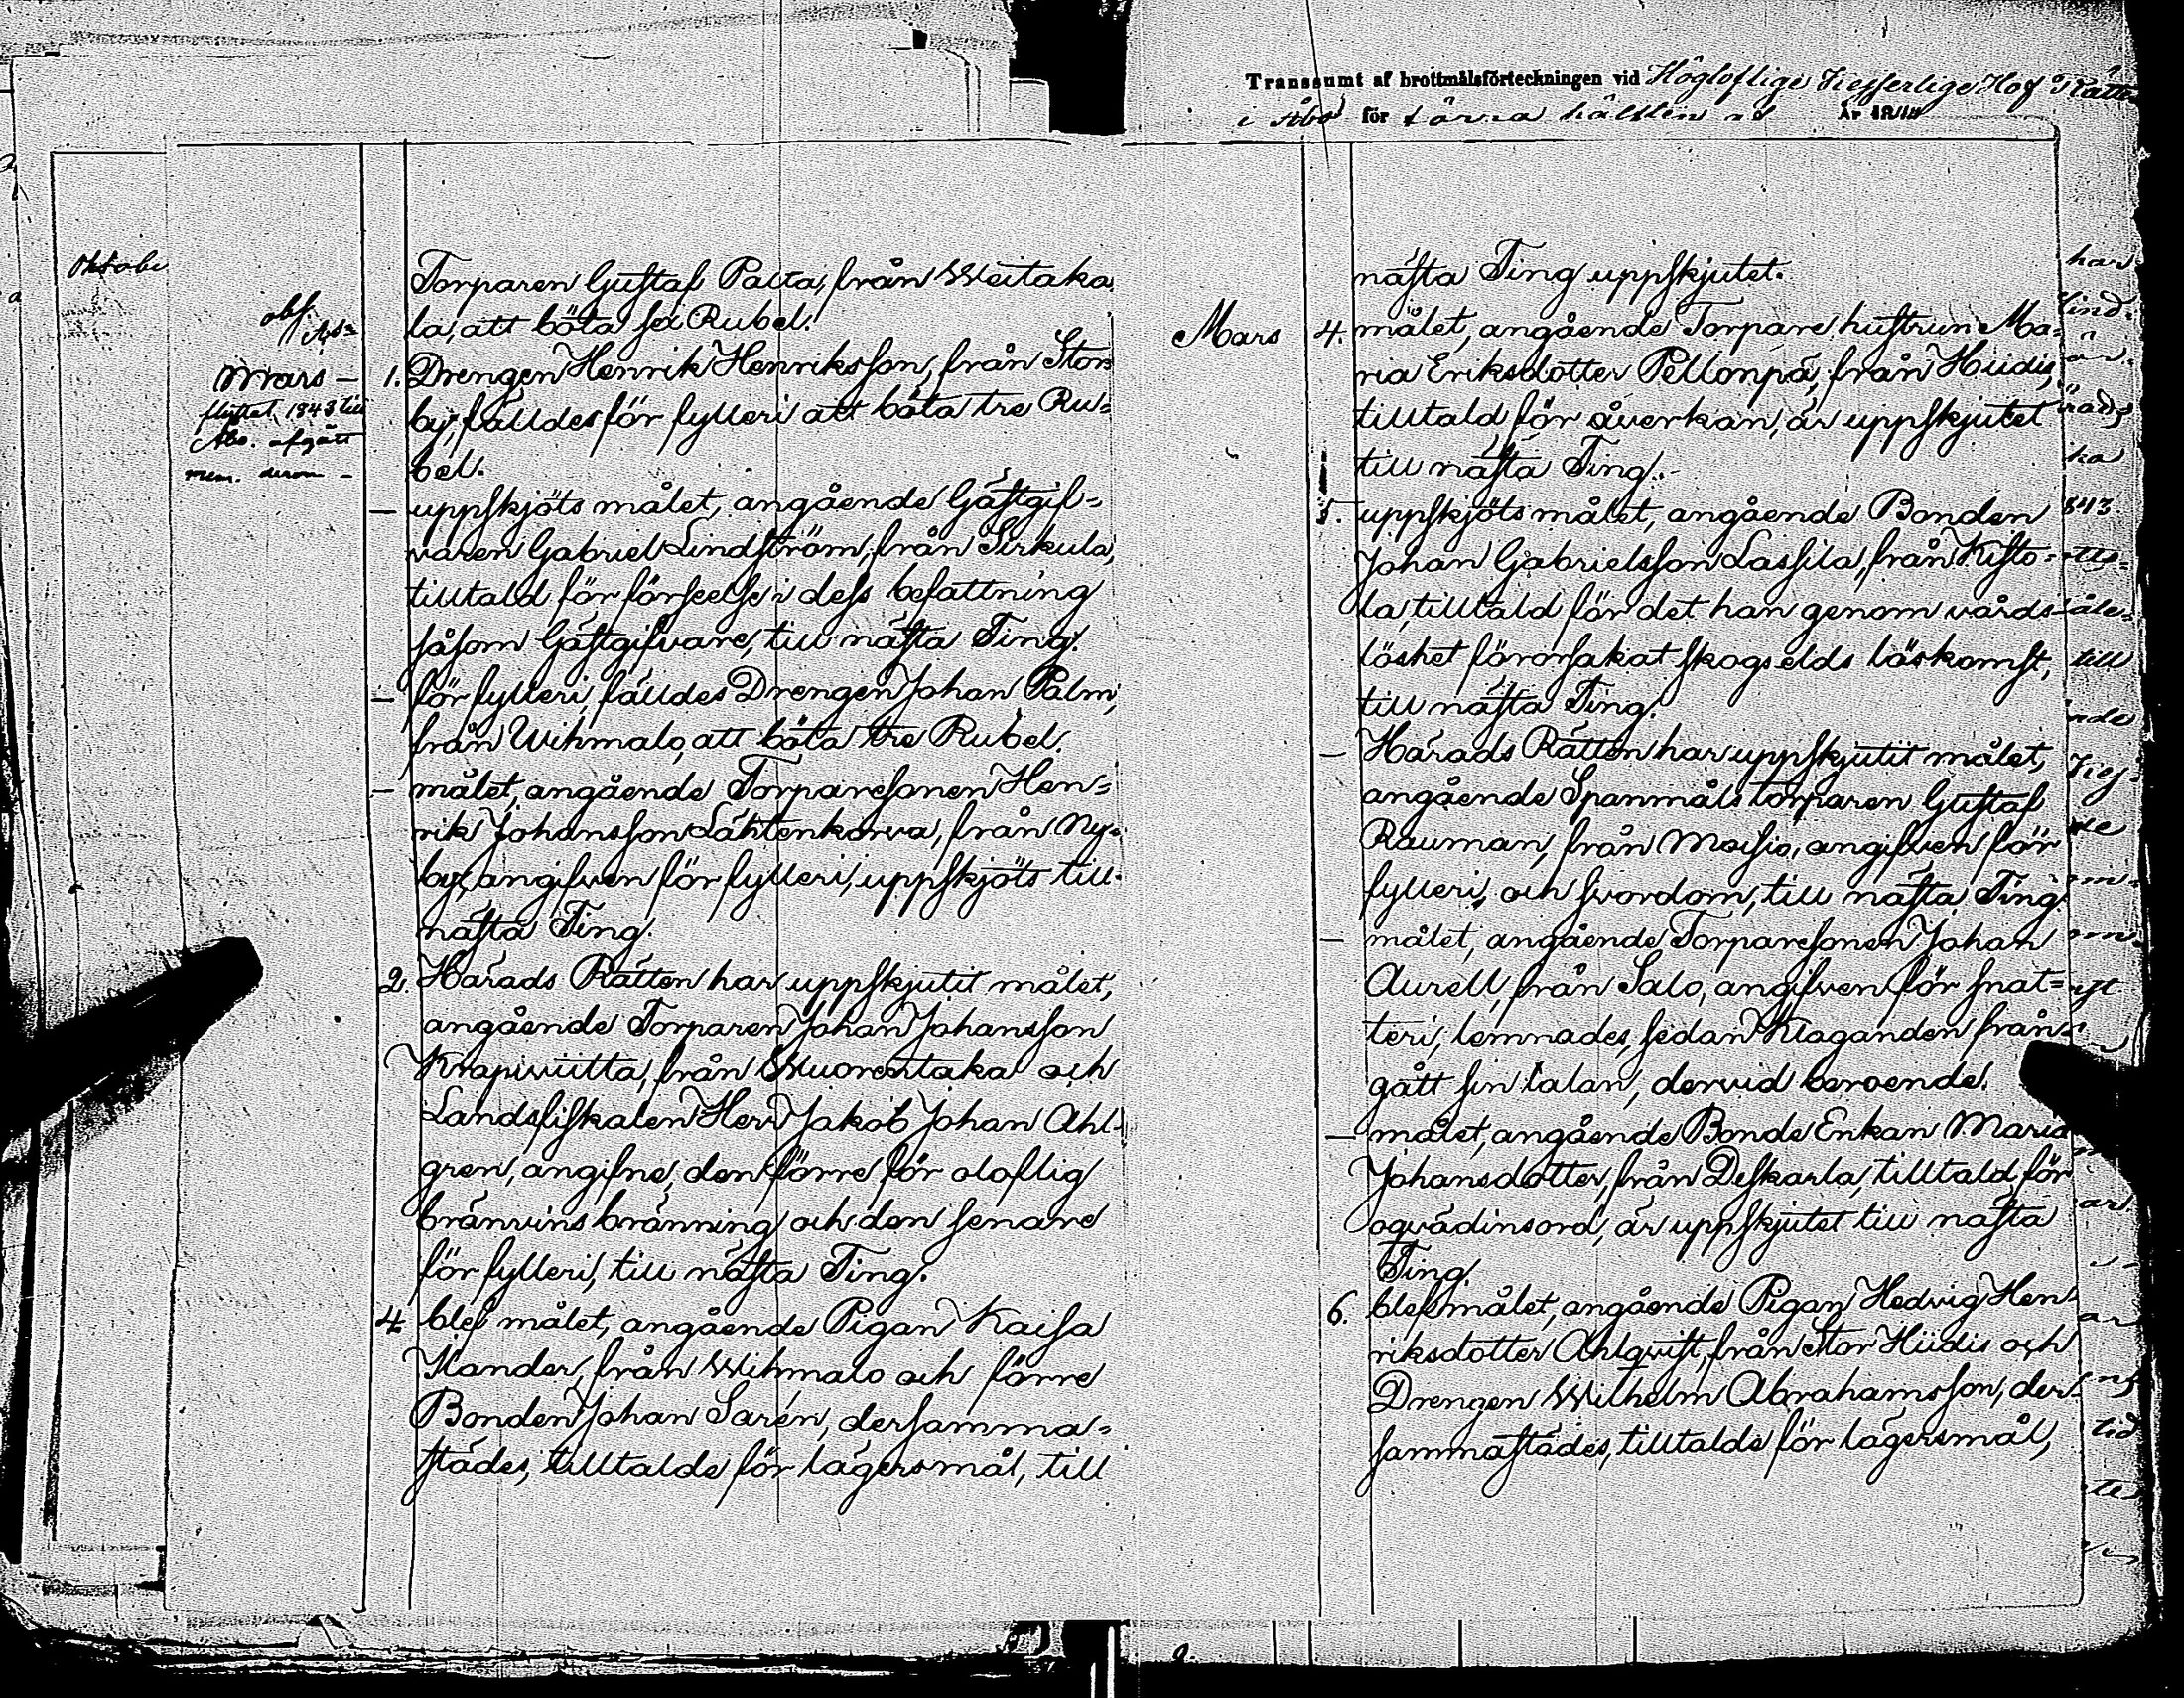 Transsumt af brottmålsförteckningen vid Högloflige Kejserlige Hof Rätten
i Åbo för förra hälften af År 18
Oktober
obs.
Mars –
flyttat 1843 till
Åbo. afgått
mem. derom –
Torparen Gustaf Palta, från Weitaka
la, att böta sex Rubel.
1. Drengen Henrik Henriksson, från Stor
by, fälldes för fylleri att böta tre Ru=
bel.
— uppskjöts målet, angående Gästgif=
varen Gabriel Lindström, från Sirkula,
tilltald för förseelse i dess befattning
såsom Gästgifvare, till nästa Ting.
— för fylleri, fälldes Drengen Johan Palm,
från Wihmalo, att böta tre Rubel.
— målet, angående Torparesonen Hen=
rik Johansson Lähtenkorva, från Ny=
by, angifven för fylleri, uppskjöts till
nästa Ting.
2. Härads Rätten har uppskjutit målet,
angående Torparen Johan Johansson
Krapiviitta, från Wuorentaka och
Landsfiskalen Herr Jakob Johan Ahl-
gren, angifne, den förre för oloflig
bränvins bränning och den senare
för fylleri, till nästa Ting.
4 blef målet, angående Pigan Kaisa
Kander, från Wihmalo och förre
Bonden Johan Sarén, dersamma=
städes, tilltalde för lägersmål, till
nästa Ting uppskjutet.
Mars 4. målet, angående Torpare hustrun Ma=
ria Eriksdotter Pellonpä, från Hiidis,
tilltald för åverkan, är uppskjutet
till nästa Ting.
5. uppskjöts målet, angående Bonden
Johan Gabrielsson Lassila, från Kisto=
la, tilltald för det han genom vårds=
löshet förorsakat skogselds löskomst,
till nästa Ting.
— Härads Rätten har uppskjutit målet,
angående Spanmåls torparen Gustaf
Rauman, från Moisio, angifven för
fylleri, och svordom, till nästa Ting.
— målet, angående Torparesonen Johan
Aurell, från Salo, angifven för snat=
teri, lemnades, sedan Klaganden från=
gått sin talan, dervid beroende.
— målet, angående Bonde Enkan Maria
Johansdotter, från Deskarla, tilltald för
oqvädinsord, är uppskjutet till nästa
Ting.
6. blef målet, angående Pigan Hedvig Hen=
riksdotter Ahlqvist, från Stor Hiidis och
Drengen Wilhelm Abrahamsson, der=
sammastädes, tilltalde för lägersmål,
har
843
till